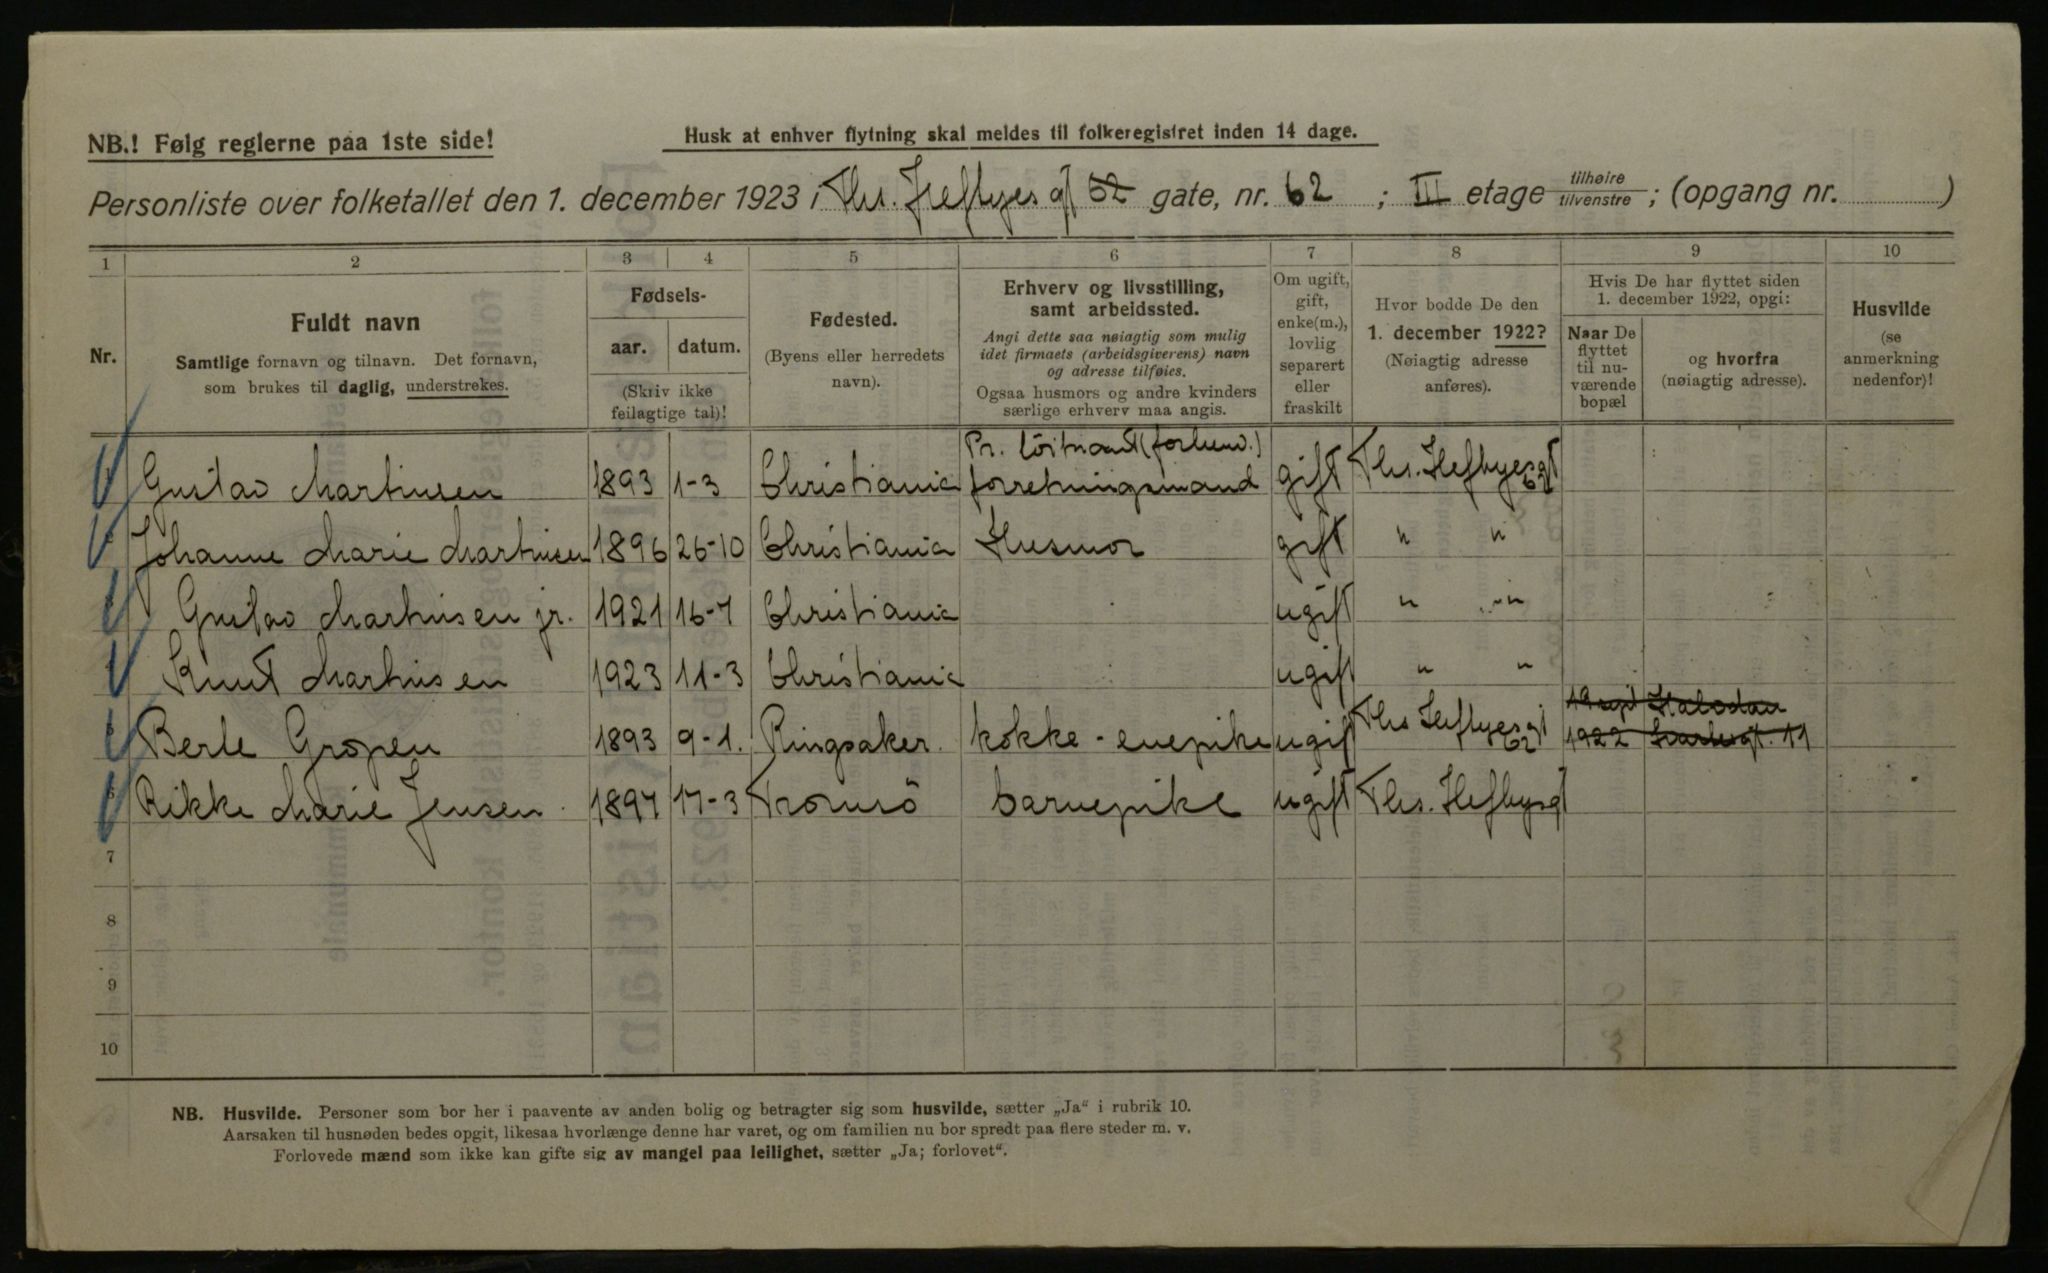 NB.! Følg reglerne paa 1ste side!
Husk at enhver flytning skal meldes til folkeregistret inden 14 dage.
Personliste over folketallet den 1. december 1923 i Ths. Heftyes gt 62 gate, nr. 62 ; III etage tilhøire tilvenstre ; (opgang nr. )
1 2 3 4 5 6 7 8 9 10
Nr.
Fuldt navn
Samtlige fornavn og tilnavn. Det fornavn,
som brukes til daglig, understrekes.
Fødsels-
aar. datum.
(Skriv ikke
feilagtige tal)!
Fødested.
(Byens eller herredets
navn).
Erhverv og livsstilling,
samt arbeidssted.
Angi dette saa nøiagtig som mulig
idet firmaets (arbeidsgiverens) navn
og adresse tilføies.
Ogsaa husmors og andre kvinders
særlige erhverv maa angis.
Om ugift,
gift,
enke(m.),
lovlig
separert
eller
fraskilt
Hvor bodde De den
1. december 1922?
(Nøiagtig adresse
anføres).
Hvis De har flyttet siden
1. december 1922, opgi:
Naar De
flyttet
til nu-
værende
bopæl
og hvorfra
(nøiagtig adresse).
Husvilde
(se
anmerkning
nedenfor)!
Pr. löitnant (forhenv.)
Gustav Martinsen 1893 1-3 Christiania forretningsmand gift Ths. Heftyesgt 62
Johanne Marie Martinsen 1896 26-10 Christiania Husmor gift " "
Gustav Martinsen jr. 1921 16-7 Christiania ugift " "
4 Knut Martinsen 1923 11-3 Christiania ugift " "
5 Berle Gropen 1893 9-1. Ringsaker. kokke-enepike ugift Ths Heftyesgt 62 19 sept 1922 11
6 Rikke Marie Jensen 1897 17-3 Tromsö barnepike ugift Ths. Heftyesgt
7
8
9
10
3
NB. Husvilde. Personer som bor her i paavente av anden bolig og betragter sig som husvilde, sætter „Ja“ i rubrik 10.
Aarsaken til husnøden bedes opgit, likesaa hvorlænge denne har varet, og om familien nu bor spredt paa flere steder m. v.
Forlovede mænd som ikke kan gifte sig av mangel paa leilighet, sætter „Ja; forlovet“.